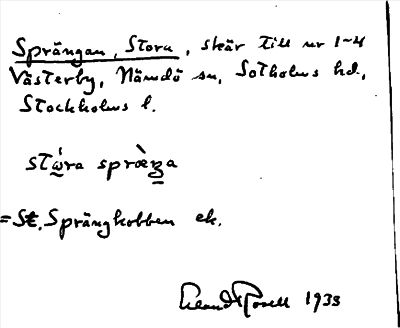 Sprängan, Stora, skär till nr 1-4
Västerby, Nämdö sn, Sotholms hd.,
Stockholms l.
stὼra spræ̀ŋa
= St. Sprängkobben ek.
Erland Rosell 1933